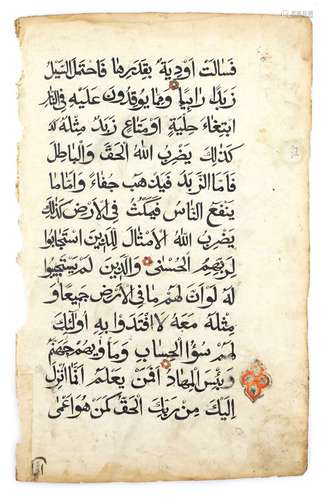 فسالت اودية بقدرها فاحتمل السيل
زبدا رابيا ومما يوقدون عليه في النار
ابتغاء حلية او متاع زبد مثله
كذلك يضرب الله الحق والباطل
فاما الزبد فيذهب جفاء واما ما
ينفع الناس فيمكث في الارض كذلك
يضرب الله الامثال للذين استجابوا
لربهم الحسنى والذين لم يستجيبوا
له لو ان لهم ما في الارض جميعا و
مثله معه لافتدوا به اولئك
لهم سوء الحساب وماويهم جهنم
وبئس المهاد افمن يعلم انما انزل
اليك من ربك الحق كمن هو اعمى